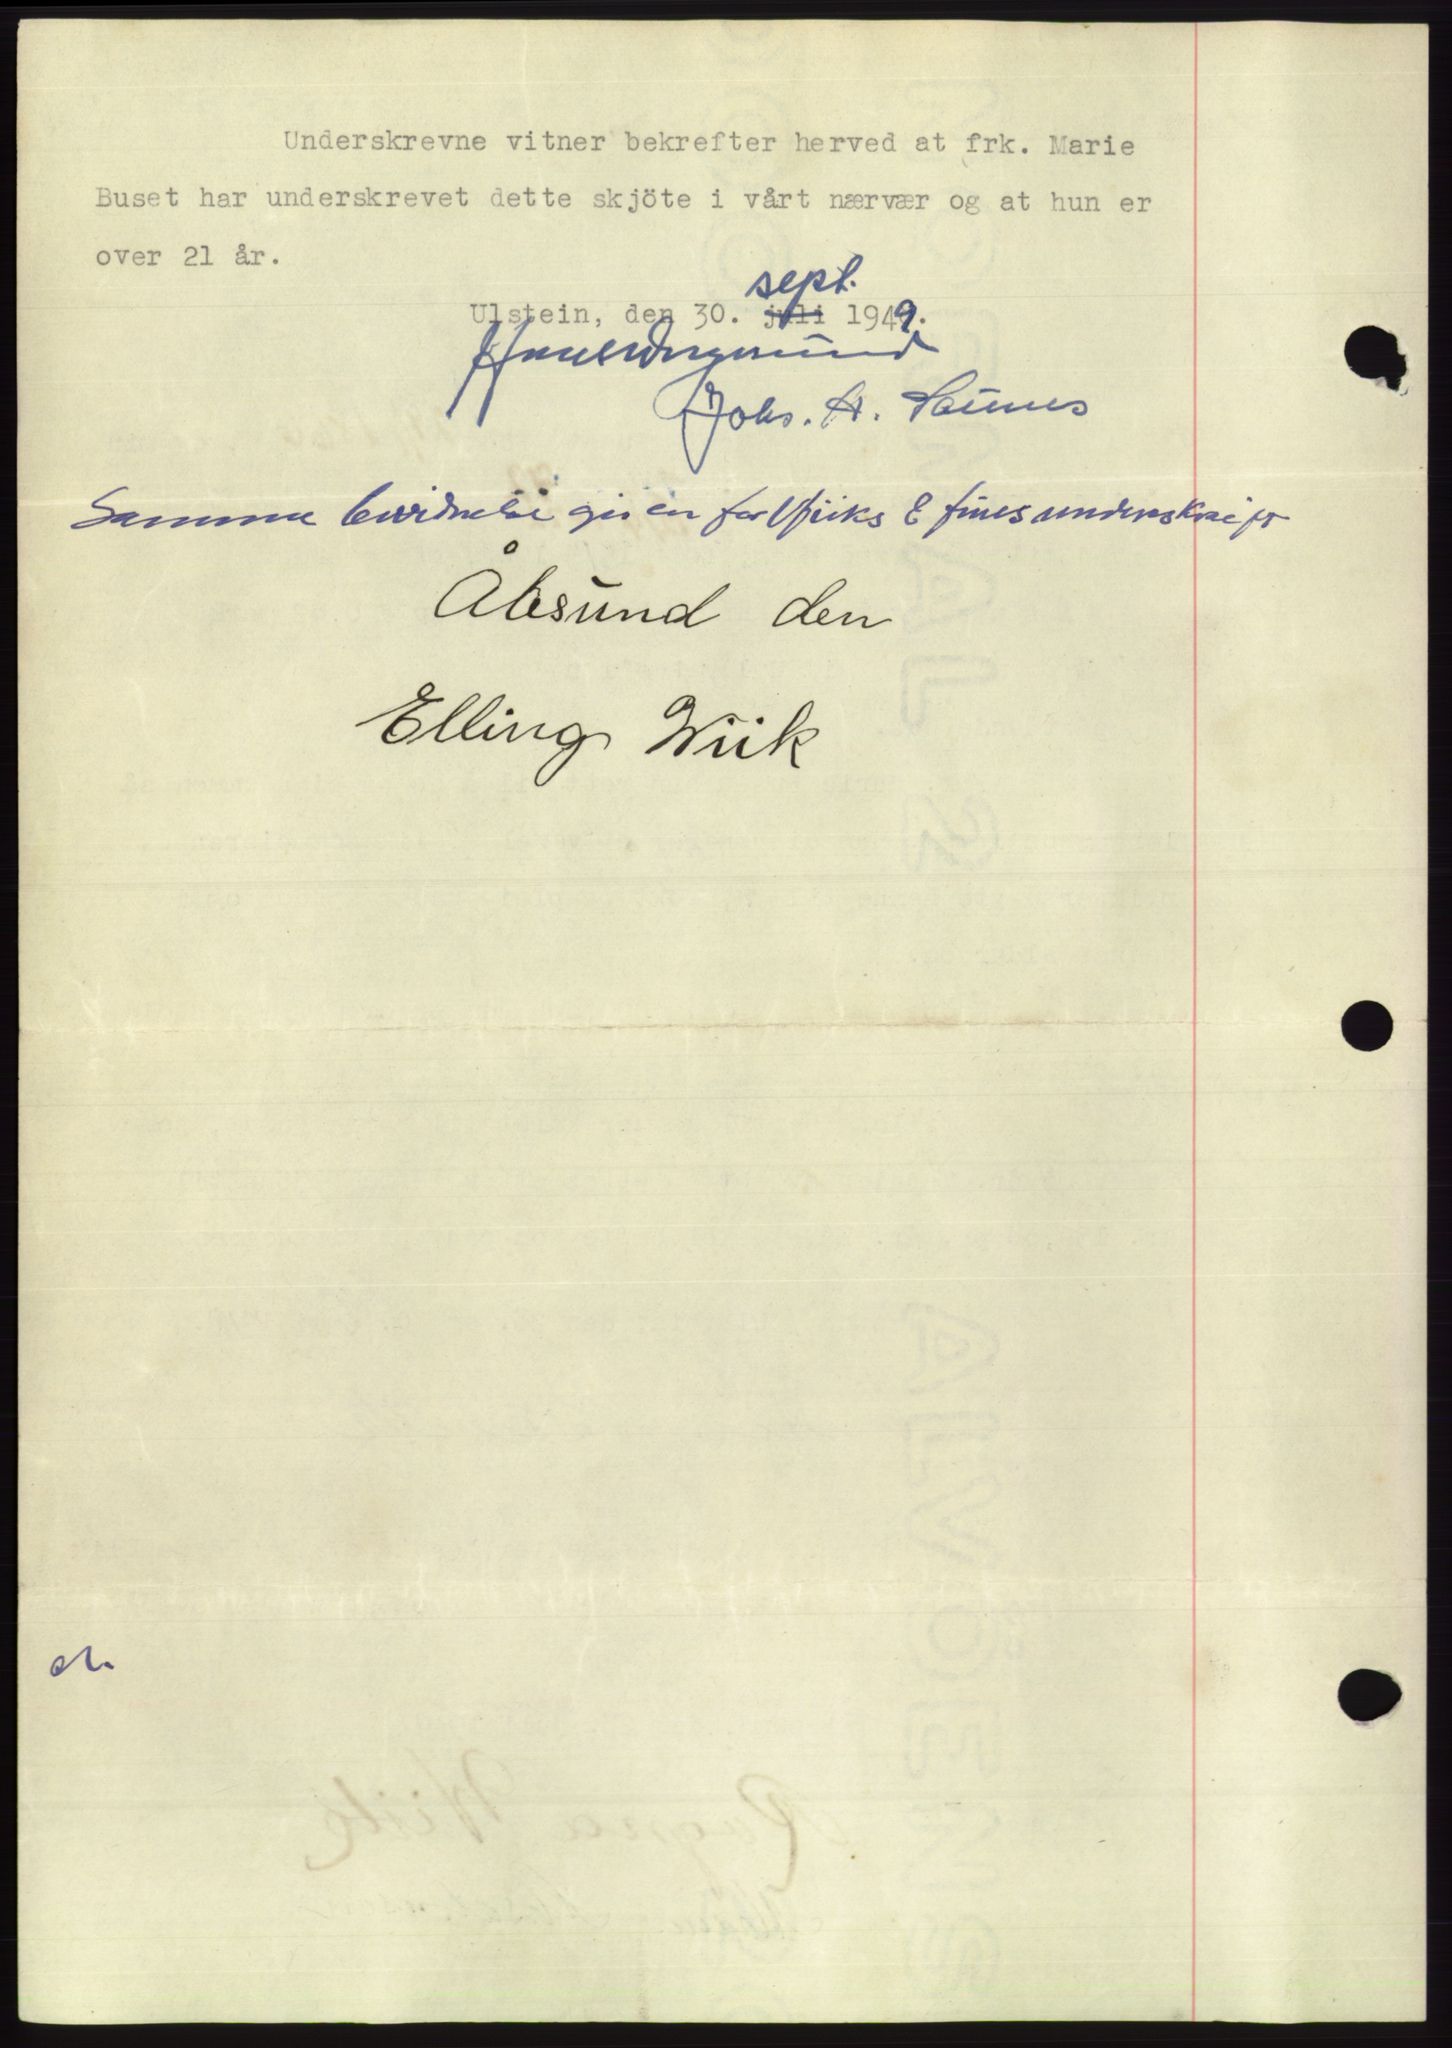 Underskrevne vitner bekrefter herved at frk. Marie
Buset har underskrevet dette skjöte i vårt nærvær og at hun er
over 21 år.
sept.
Ulstein, den 30. juli 1949.
Johs. H.
Samme bevidnelse gis en for underskrift
Ålesund den
Elling Wiik